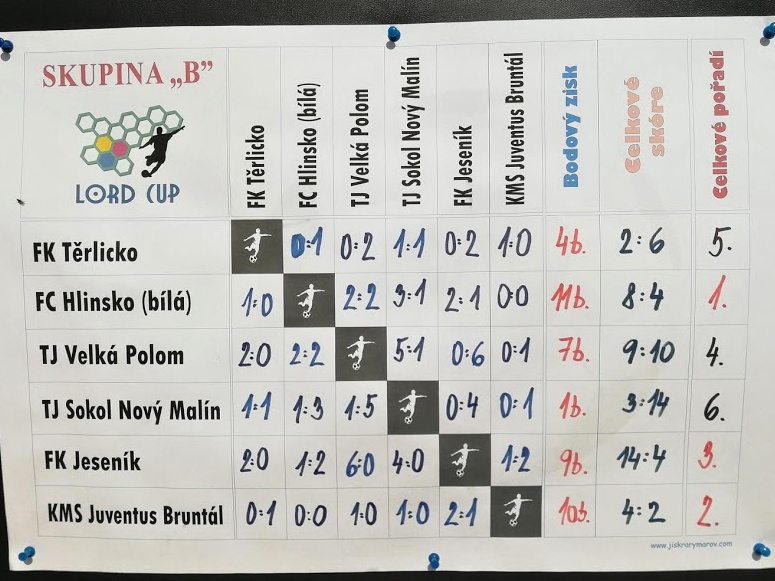 SKUPINA „B”
LORD CUP
FK Těrlicko
FC Hlinsko (bílá)
TJ Velká Polom
TJ Sokol Nový Malín
FK Jeseník
KMS Juventus Bruntál
Bodový zisk
Celkové skóre
Celkové pořadí
FK Těrlicko 0:1 0:2 1:1 0:2 1:0 4b. 2:6 5.
FC Hlinsko (bílá) 1:0 2:2 3:1 2:1 0:0 11b. 8:4 1.
TJ Velká Polom 2:0 2:2 5:1 0:6 0:1 7b. 9:10 4.
TJ Sokol Nový Malín 1:1 1:3 1:5 0:4 0:1 1b. 3:14 6.
FK Jeseník 2:0 1:2 6:0 4:0 1:2 9b. 14:4 3.
KMS Juventus Bruntál 0:1 0:0 1:0 1:0 2:1 10b. 4:2 2.
www.jiskrarymarov.com